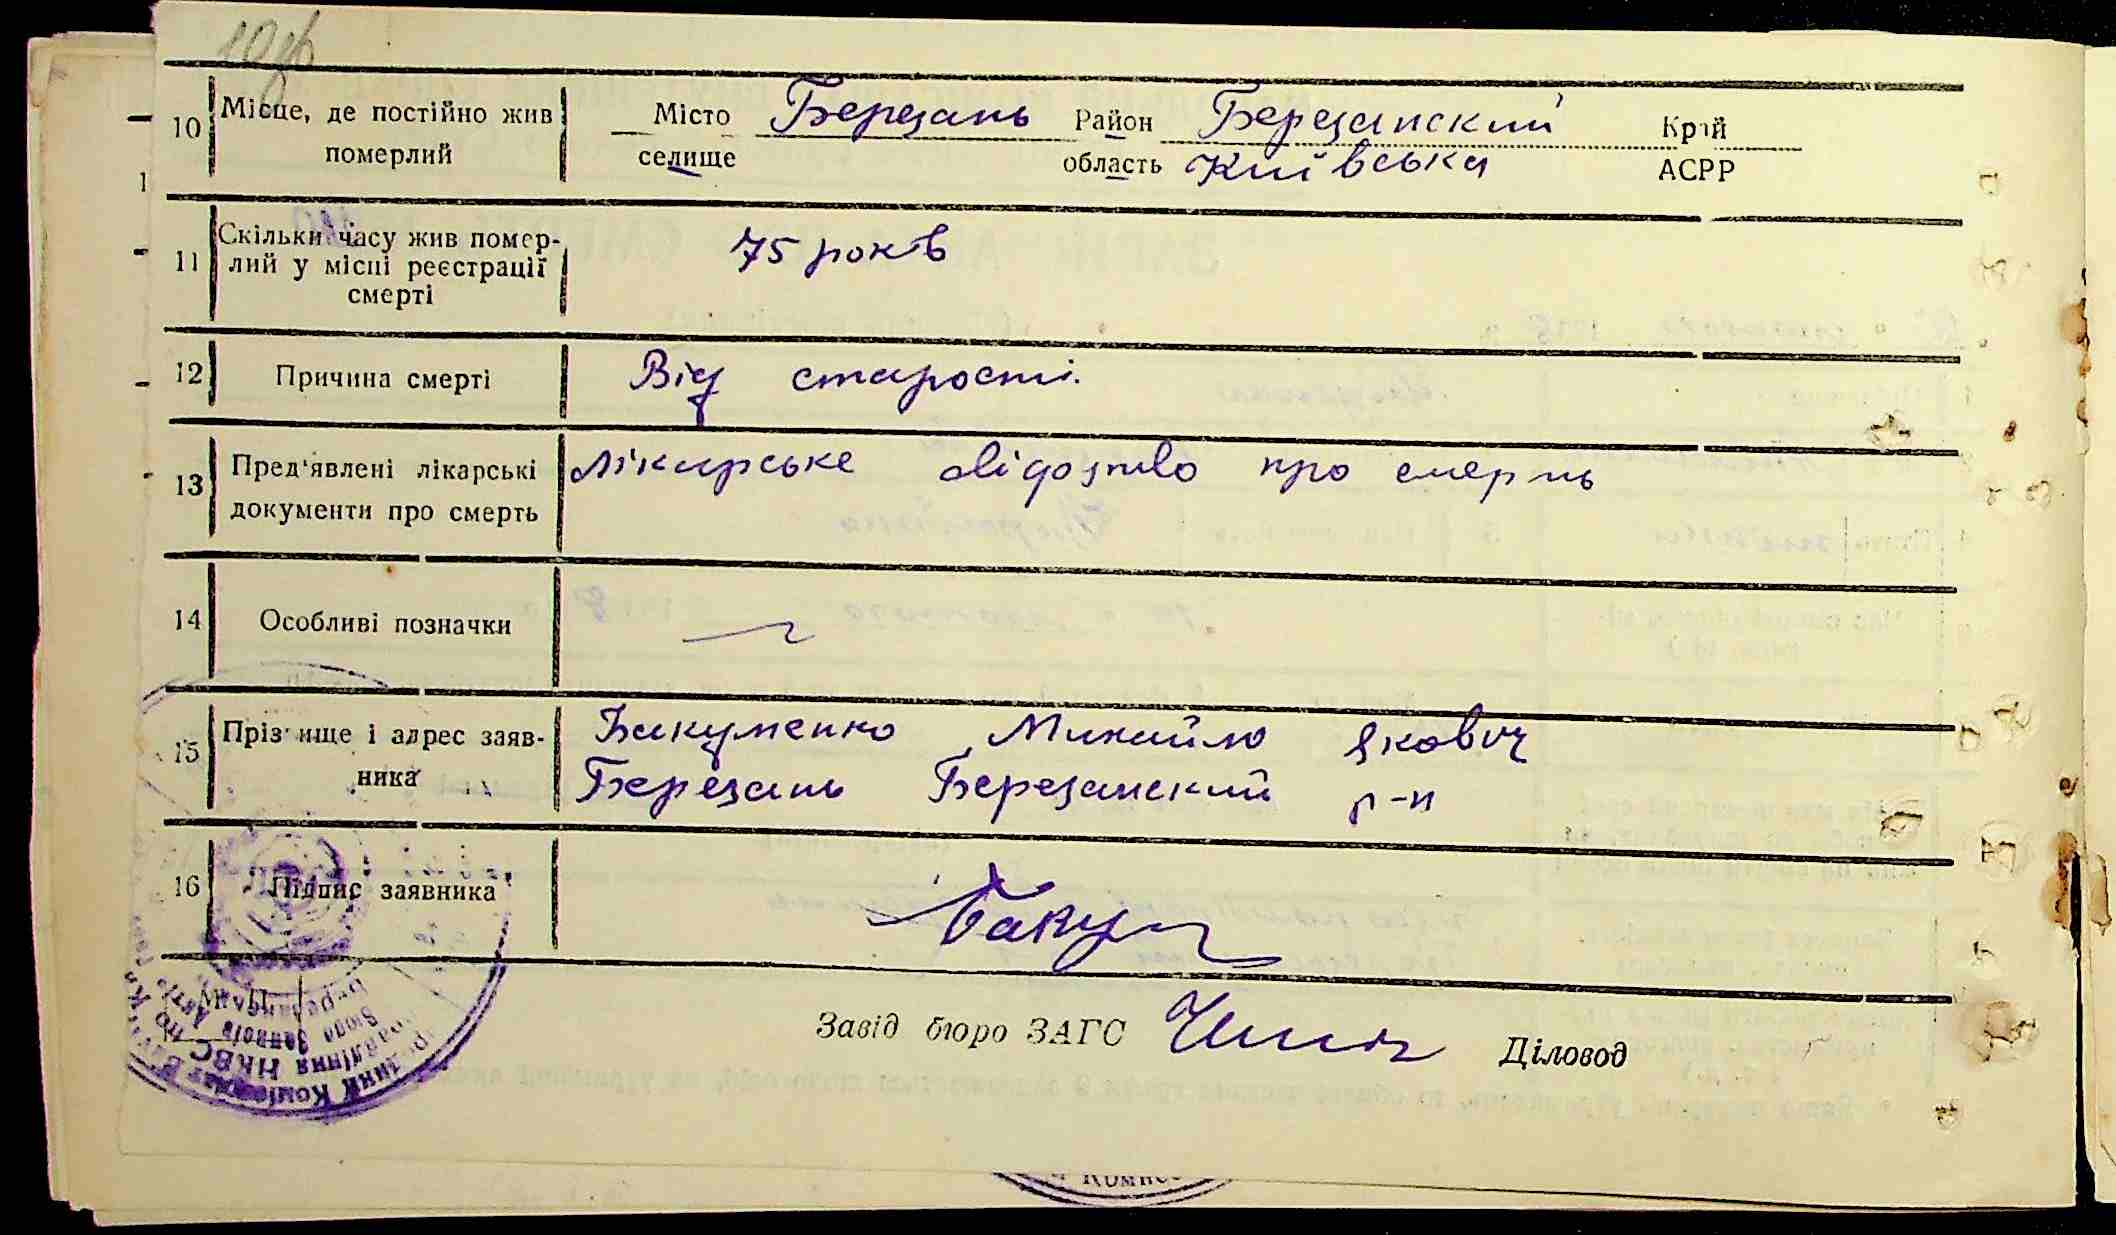 10
10 Місце, де постійно жив Місто Березань Район Березанский Край
померлий селище область Київська АСРР
Скільки часу жив помер- 75 років
11 лий у місці реєстрації
смерті
12 Причина смерті Від старости.
13 Пред'явлені лікарські Лікарське свідозтво про смерть
документи про смерть
14 Особливі позначки —
15 Прізвище і адрес заяв- Бакуменко Михайло Якович
ника Березань Березанский р-н
16 Підпис заявника Бакум
Завід бюро ЗАГС Діловод